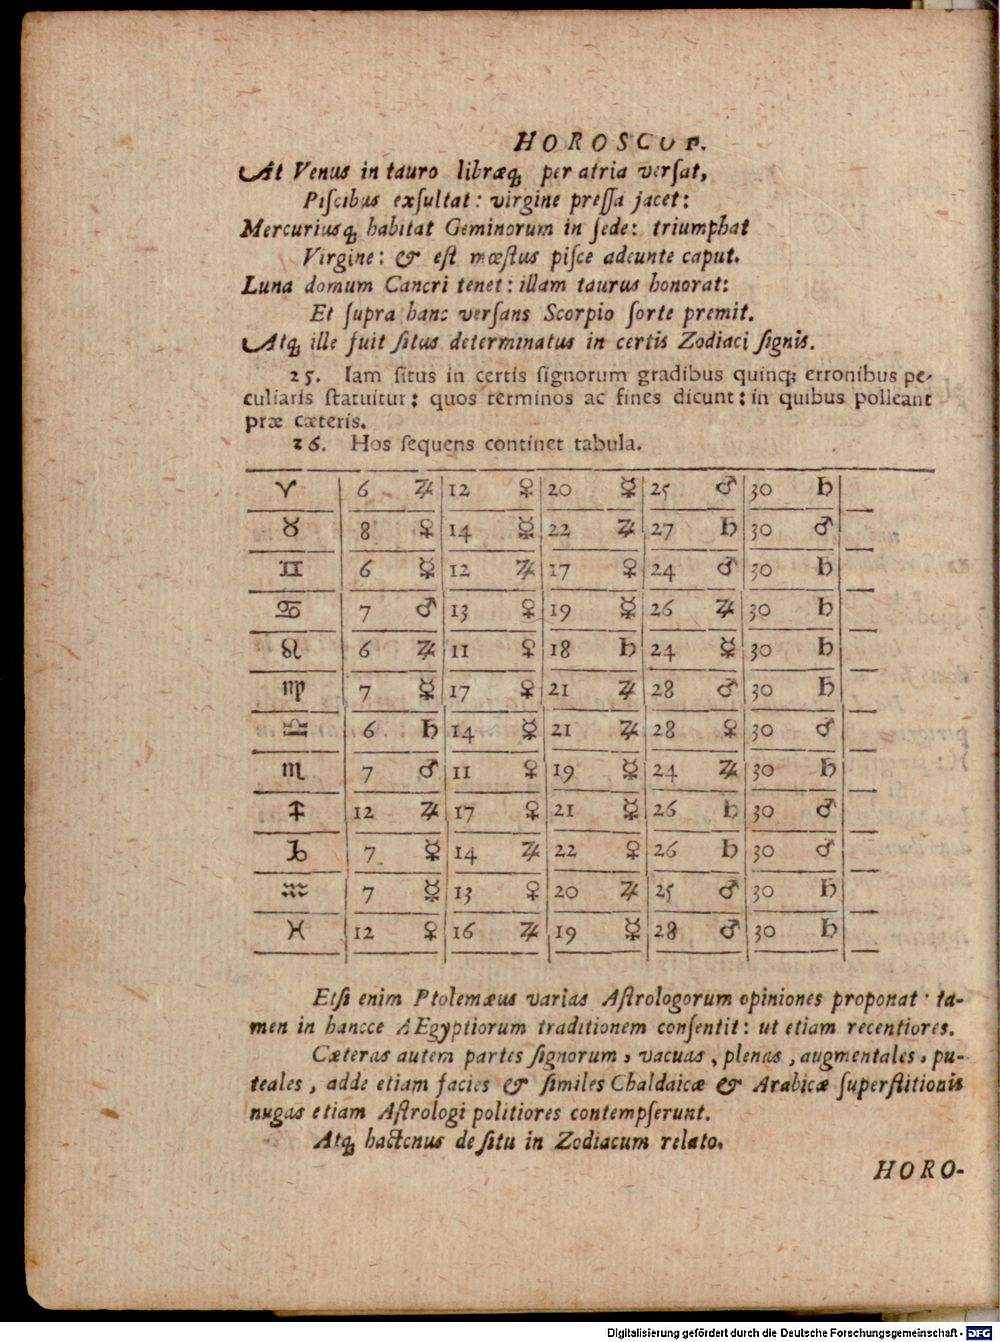 HOROSCOP.
At Venus in tauro libræq́; per atria verſat,
Piſcibus exſultat: virgine preſſa jacet:
Mercuriusq́; habitat Geminorum in ſede: triumphat
Virgine: & eſt mœſtus piſce adeunte caput.
Luna domum Cancri tenet: illam taurus honorat:
Et ſupra hanc verſans Scorpio ſorte premit.
Atq́; ille fuit ſitus determinatus in certis Zodiaci ſignis.
25. Iam ſitus in certis ſignorum gradibus quinq; erronibus pe-
culiaris ſtatuitur: quos terminos ac fines dicunt: in quibus polleant
præ cæteris.
26. Hos ſequens continet tabula.
♈ 6 ♃ 12 ♀ 20 ☿ 25 ♂ 30 ♄
♉ 8 ♀ 14 ☿ 22 ♃ 27 ♄ 30 ♂
♊ 6 ☿ 12 ♃ 17 ♀ 24 ♂ 30 ♄
♋ 7 ♂ 13 ♀ 19 ☿ 26 ♃ 30 ♄
♌ 6 ♃ 11 ♀ 18 ♄ 24 ☿ 30 ♄
♍ 7 ☿ 17 ♀ 21 ♃ 28 ♂ 30 ♄
♎ 6 ♄ 14 ☿ 21 ♃ 28 ♀ 30 ♂
♏ 7 ♂ 11 ♀ 19 ☿ 24 ♃ 30 ♄
♐ 12 ♃ 17 ♀ 21 ☿ 26 ♄ 30 ♂
♑ 7 ☿ 14 ♃ 22 ♀ 26 ♄ 30 ♂
♒ 7 ☿ 13 ♀ 20 ♃ 25 ♂ 30 ♄
♓ 12 ♀ 16 ♃ 19 ☿ 28 ♂ 30 ♄
Etſi enim Ptolemæus varias Aſtrologorum opiniones proponat: ta-
men in hancce AEgyptiorum traditionem conſentit: ut etiam recentiores.
Cæteras autem partes ſignorum, vacuas, plenas, augmentales, pu-
teales, adde etiam facies & ſimiles Chaldaicæ & Arabicæ ſuperſtitionis
nugas etiam Aſtrologi politiores contempſerunt.
Atq́; hactenus de ſitu in Zodiacum relato.
HORO-
Digitalisierung gefördert durch die Deutsche Forschungsgemeinschaft - DFG